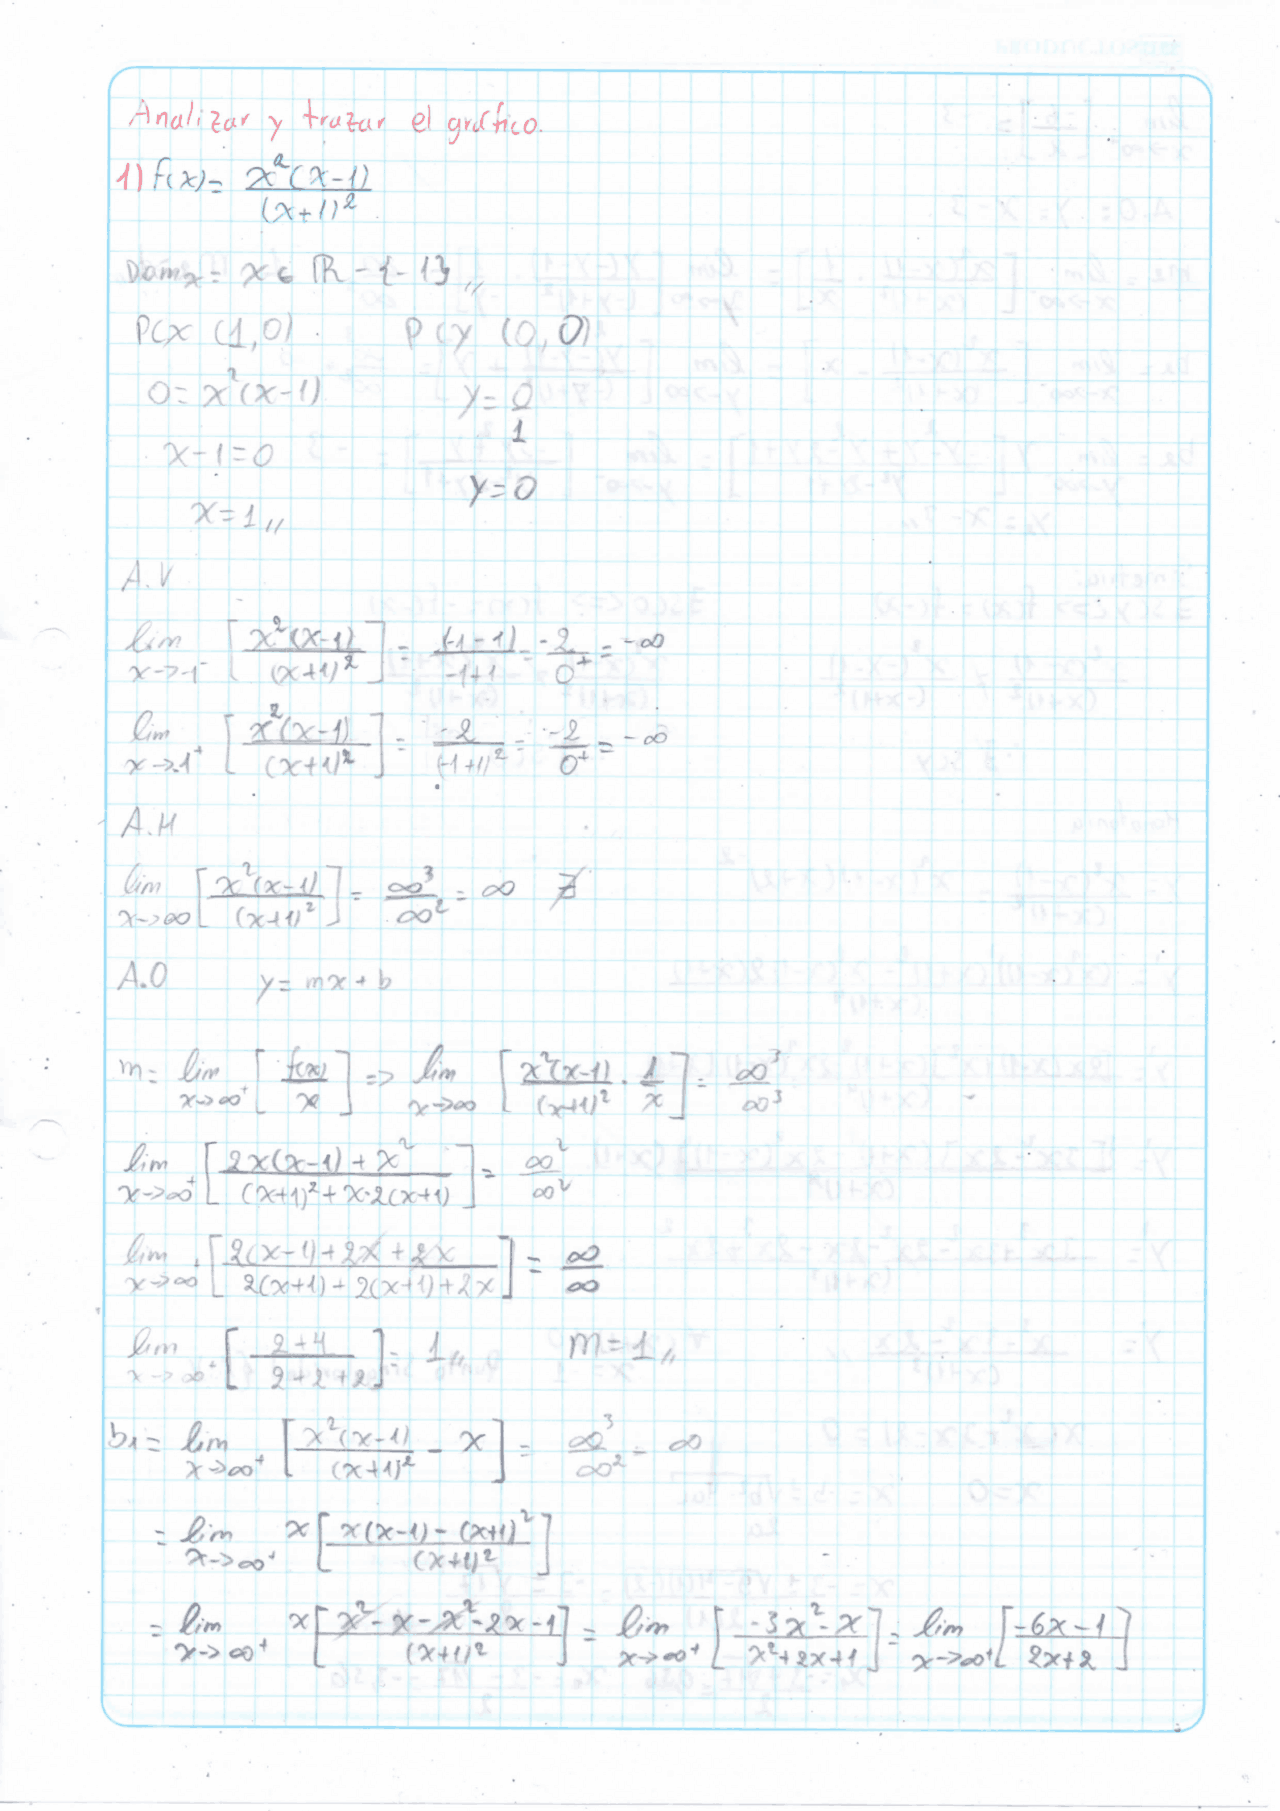 Analizar y trazar el gráfico.
1) f(x) = x²(x-1) / (x+1)²
Domx = x ∈ ℝ - {-1} //
PCx (1,0)    PCy (0,0)
0 = x²(x-1)    y = 0/1
x-1=0    y=0
x=1 //
A.V
lim x→-1⁻ [x²(x-1) / (x+1)²] = (-1-1) / -1+1 = -2 / 0⁺ = -∞
lim x→-1⁺ [x²(x-1) / (x+1)²] = -2 / (-1+1)² = -2 / 0⁺ = -∞
A.H
lim x→∞ [x²(x-1) / (x+1)²] = ∞³ / ∞² = ∞ ∄
A.O    y = mx + b
m = lim x→∞⁺ [f(x) / x] => lim x→∞ [x²(x-1) / (x+1)² · 1/x] = ∞³ / ∞³
lim x→∞⁺ [2x(x-1) + x² / (x+1)² + x·2(x+1)] = ∞² / ∞²
lim x→∞ [2(x-1) + 2x + 2x / 2(x+1) + 2(x+1) + 2x] = ∞ / ∞
lim x→∞⁺ [2+4 / 2+2+2] = 1 //    m = 1 //
b₁ = lim x→∞⁺ [x²(x-1) / (x+1)² - x] = ∞³ / ∞² = ∞
= lim x→∞⁺ x[x(x-1) - (x+1)² / (x+1)²]
= lim x→∞⁺ x[x² - x - x² - 2x - 1 / (x+1)²] = lim x→∞⁺ [-3x² - x / x² + 2x + 1] = lim x→∞⁺ [-6x - 1 / 2x + 2]